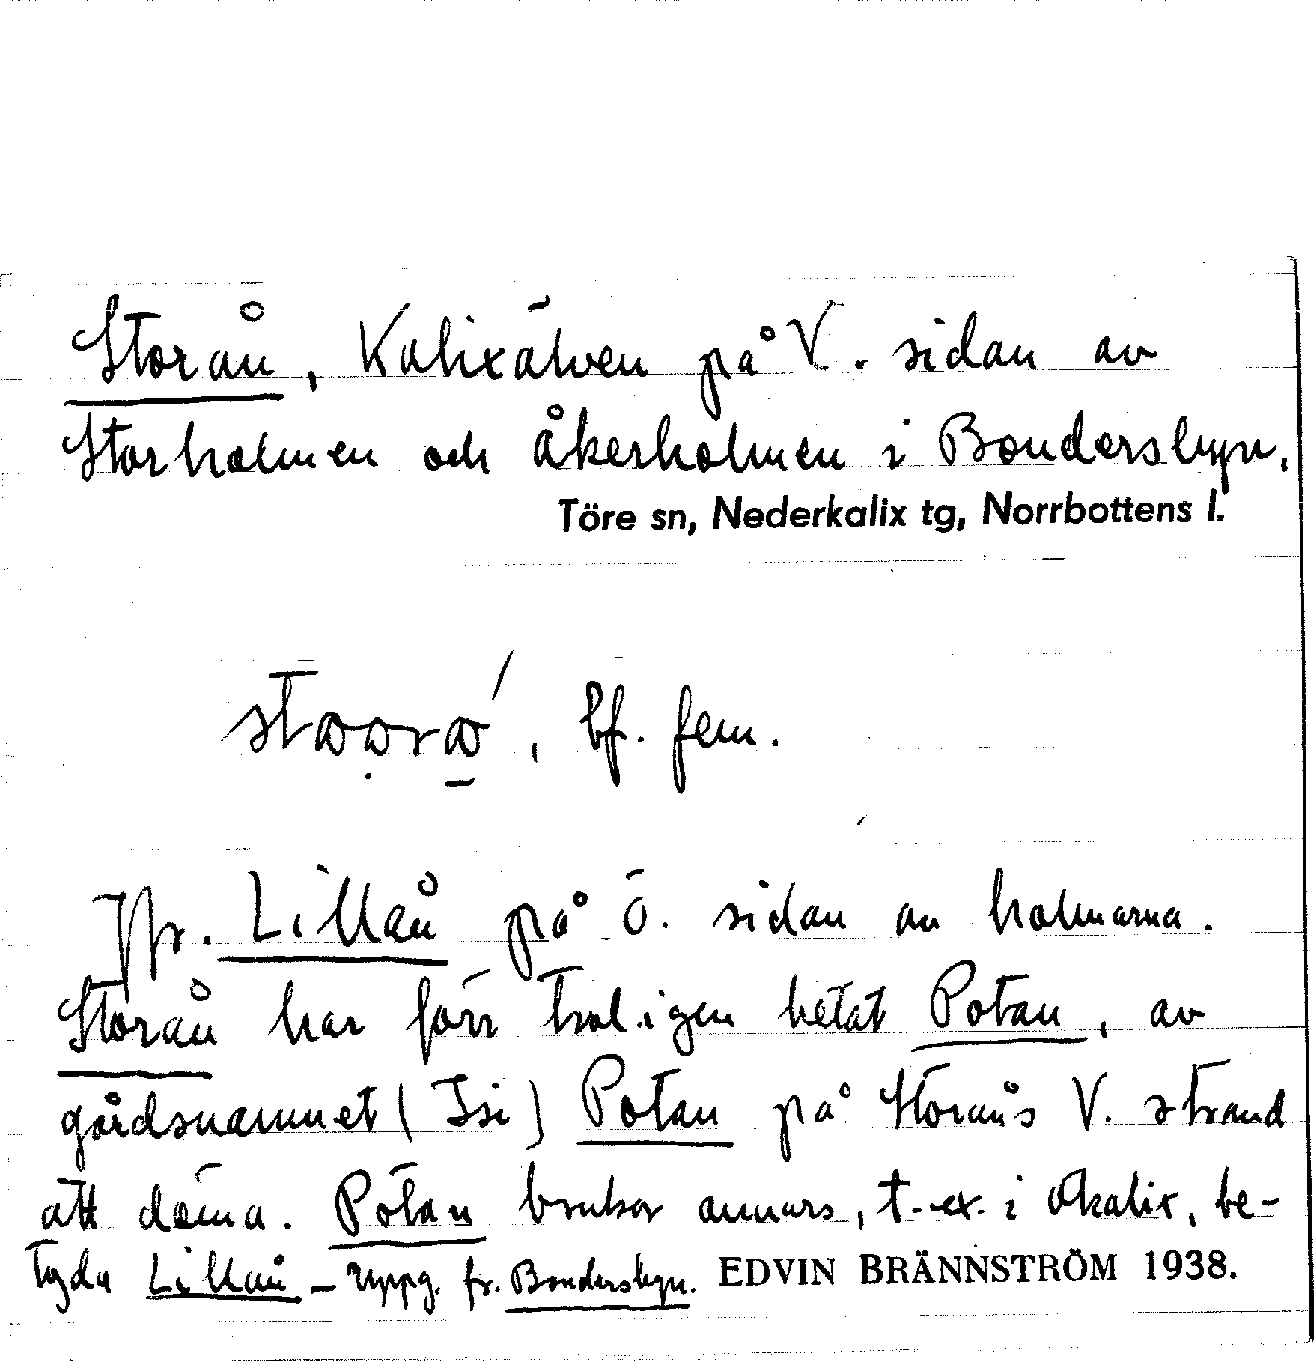 Storån, Kalixälven på V. sidan av
Storholmen och Åkerholmen i Bondersbyn,
Töre sn, Nederkalix tg, Norrbottens l.
bf. fem.
Jfr. Lillån på ö. sidan av holmarna.
Storån har förr troligen hetat Potan, av
gårdsnamnet (Isi) Potan på Storåns V. strand
att döma. Potan brukar annars, t.ex. i Ökalix, be-
tyda Lillån – uppg. fr. Bondersbyn. EDVIN BRÄNNSTRÖM 1938.